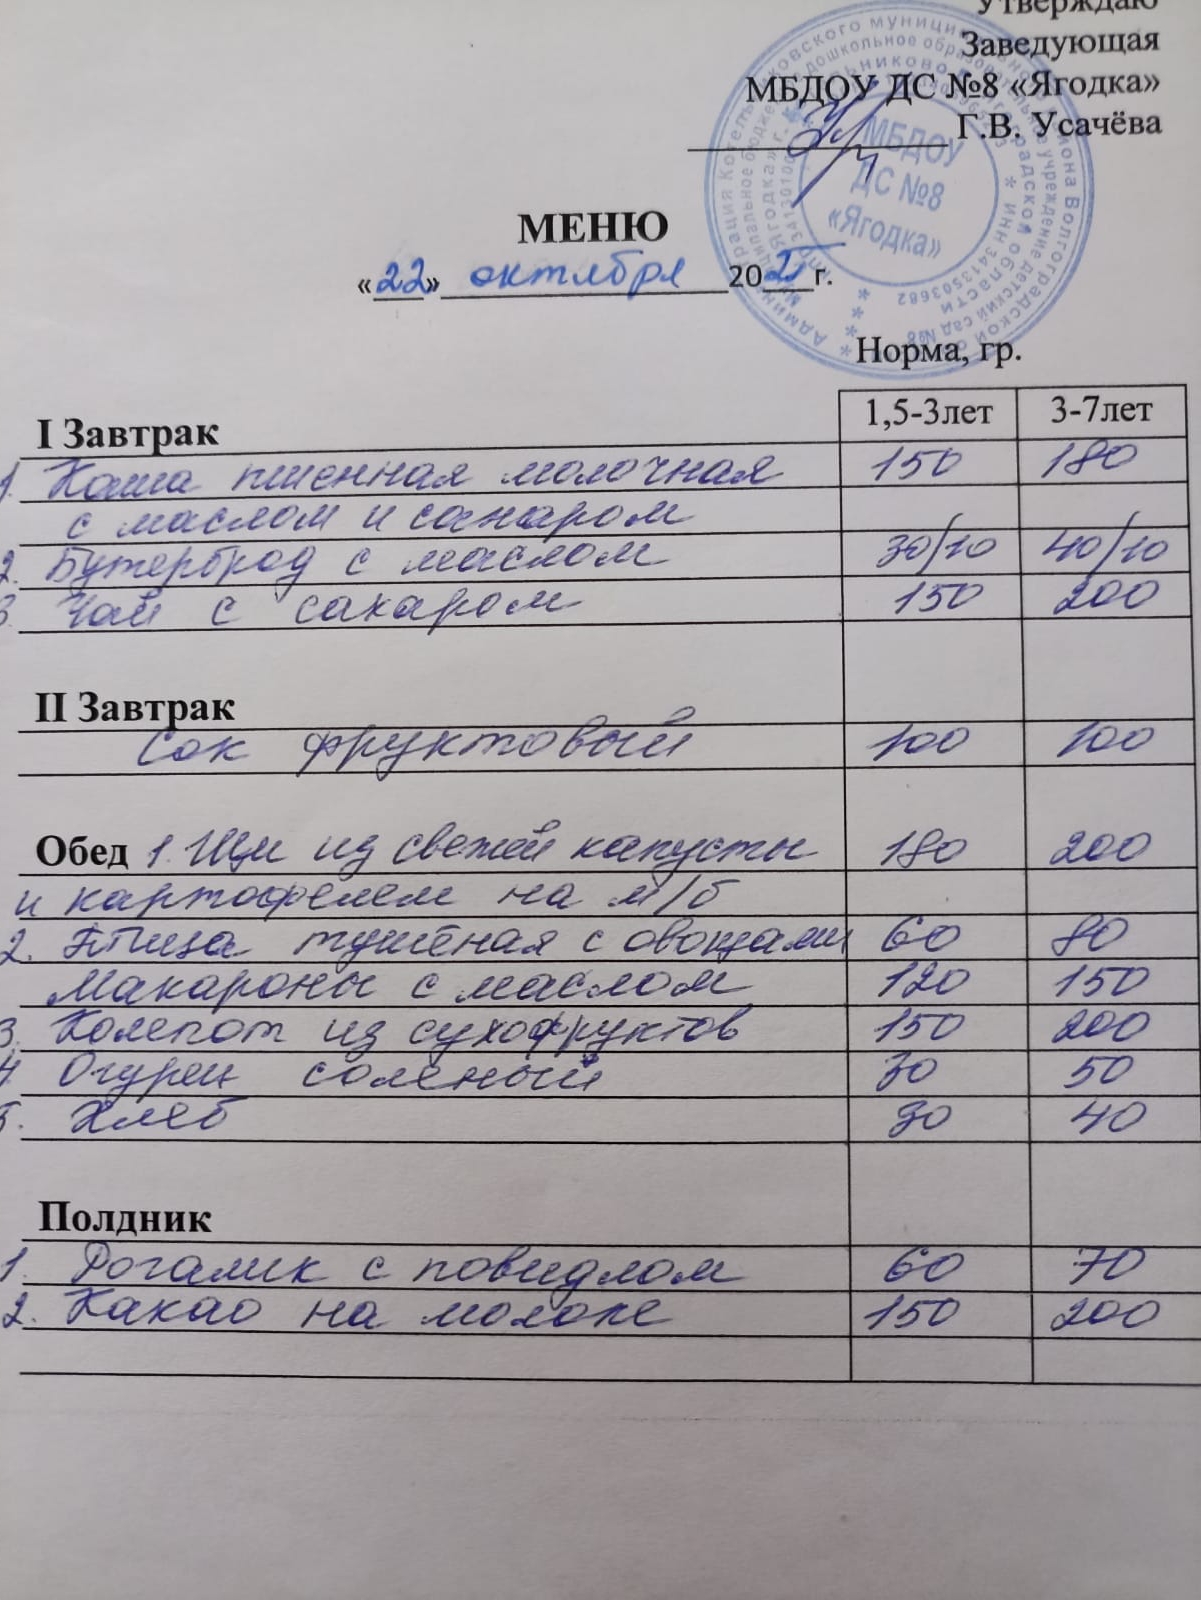 Утверждаю
Заведующая
МБДОУ ДС №8 «Ягодка»
Г.В. Усачёва
МБДОУ
ДС №8
«Ягодка»
МЕНЮ
«22» октября 2025г.
Норма, гр.
1,5-3лет 3-7лет
I Завтрак
1. Каша пшенная молочная 150 180
с маслом и сахаром
2. Бутерброд с маслом 30/10 40/10
3. Чай с сахаром 150 200
II Завтрак
Сок фруктовый 100 100
Обед 1. Щи из свежей капусты 180 200
и картофелем на м/б
2. Птица тушёная с овощами 60 80
Макароны с маслом 120 150
3. Компот из сухофруктов 150 200
4. Огурец соленый 30 50
5. Хлеб 30 40
Полдник
1. Рогалик с повидлом 60 70
2. Какао на молоке 150 200